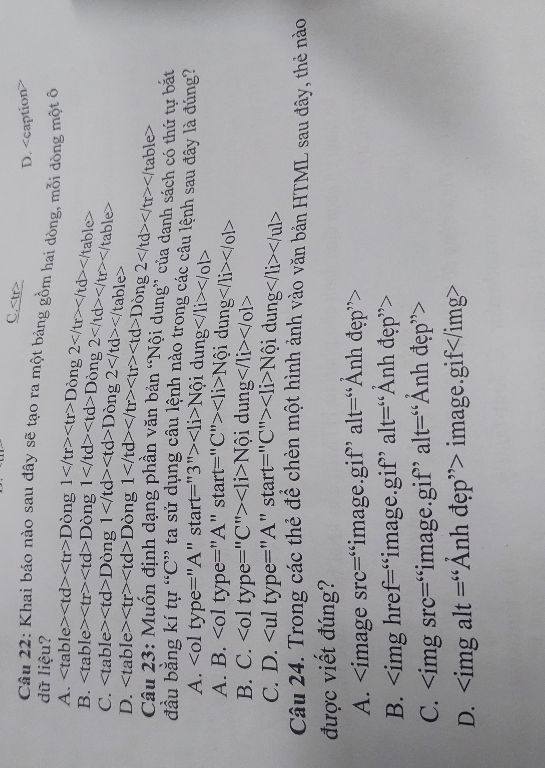 C.<tr>
D. <caption>
Câu 22: Khai báo nào sau đây sẽ tạo ra một bảng gồm hai dòng, mỗi dòng một ô
dữ liệu?
A. <table><td><tr>Dòng 1</tr><tr>Dòng 2</tr></td></table>
B. <table><tr><td>Dòng 1</td><td>Dòng 2</td></tr></table>
C. <table><td>Dòng 1</td><td>Dòng 2</td></table>
D. <table><tr><td>Dòng 1</td></tr><tr><td>Dòng 2</td></tr></table>
Câu 23: Muốn định dạng phần văn bản “Nội dung” của danh sách có thứ tự bắt
đầu bằng kí tự “C” ta sử dụng câu lệnh nào trong các câu lệnh sau đây là đúng?
A. <ol type="A" start="3"><li>Nội dung</li></ol>
A. B. <ol type="A" start="C"><li>Nội dung</li></ol>
B. C. <ol type="C"><li>Nội dung</li></ol>
C. D. <ul type="A" start="C"><li>Nội dung</li></ul>
Câu 24. Trong các thẻ để chèn một hình ảnh vào văn bản HTML sau đây, thẻ nào
được viết đúng?
A. <image src=“image.gif” alt=“Ảnh đẹp”>
B. <img href=“image.gif” alt=“Ảnh đẹp”>
C. <img src=“image.gif” alt=“Ảnh đẹp”>
D. <img alt =“Ảnh đẹp”> image.gif</img>